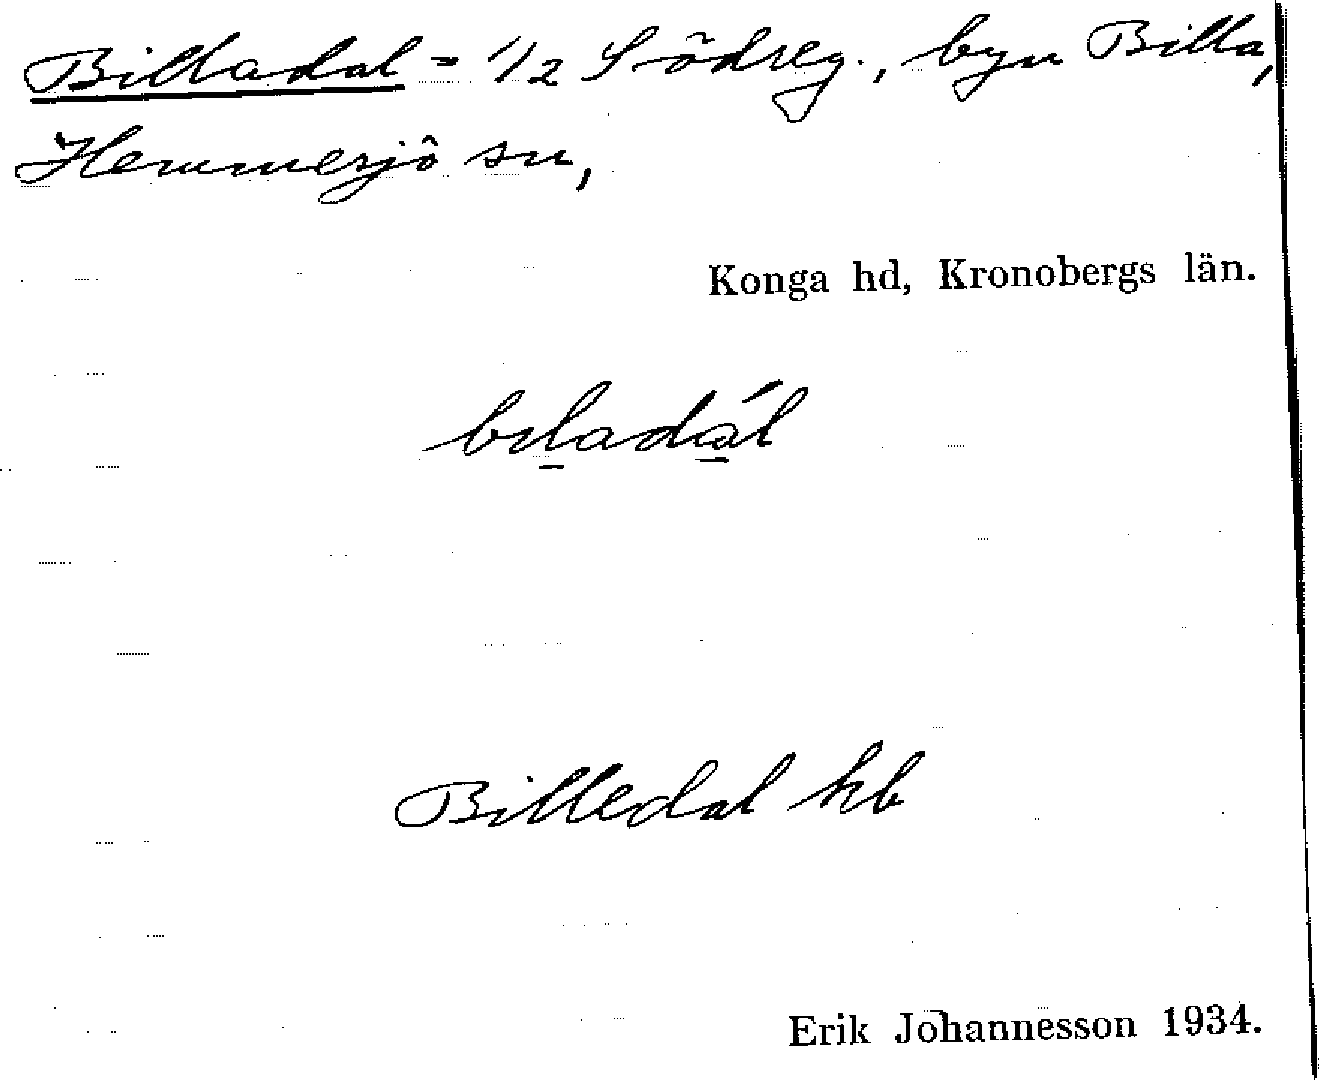 Billadal = 1/2 Södreg., byn Billa,
Hemmesjö sn,
Konga hd, Kronobergs län.
bıl̲adá̲l
Billedal hb
Erik Johannesson 1934.